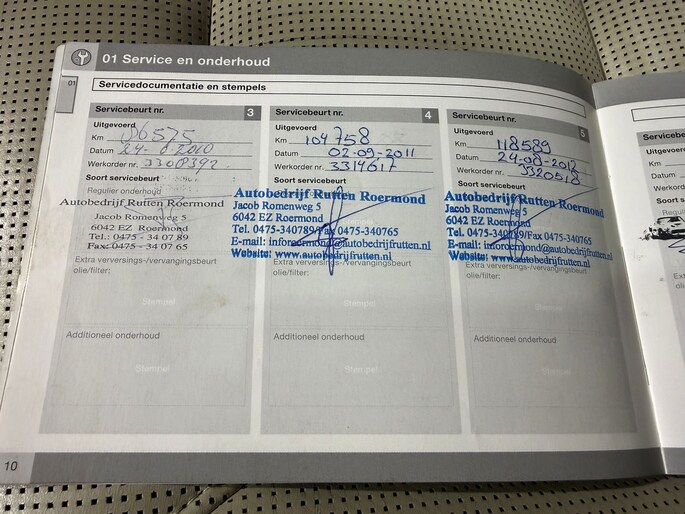 01 Service en onderhoud
01
Servicedocumentatie en stempels
Servicebeurt nr. 3
Uitgevoerd
Km
Datum
Werkorder nr.
Soort servicebeurt
Regulier onderhoud
Autobedrijf Rutten Roermond
Jacob Romenweg 5
6042 EZ Roermond
Tel.: 0475 - 34 07 89
Fax: 0475 - 34 07 65
Extra verversings-/vervangingsbeurt
olie/filter:
Stempel
Additioneel onderhoud
Stempel
Servicebeurt nr. 4
Uitgevoerd
Km 104758
Datum 02-09-2011
Werkorder nr. 3314617
Soort servicebeurt
Autobedrijf Rutten Roermond
Jacob Romenweg 5
6042 EZ Roermond
Tel. 0475-340789/Fax 0475-340765
E-mail: inforoermond@autobedrijfrutten.nl
Website: www.autobedrijfrutten.nl
Extra verversings-/vervangingsbeurt
olie/filter:
Stempel
Additioneel onderhoud
Stempel
Servicebeurt nr. 5
Uitgevoerd
Km 118589
Datum 24-08-2012
Werkorder nr. 3320518
Soort servicebeurt
Autobedrijf Rutten Roermond
Jacob Romenweg 5
6042 EZ Roermond
Tel. 0475-340789/Fax 0475-340765
E-mail: inforoermond@autobedrijfrutten.nl
Website: www.autobedrijfrutten.nl
Extra verversings-/vervangingsbeurt
olie/filter:
Stempel
Additioneel onderhoud
Stempel
10
Uitgevoerd
Km
Datum